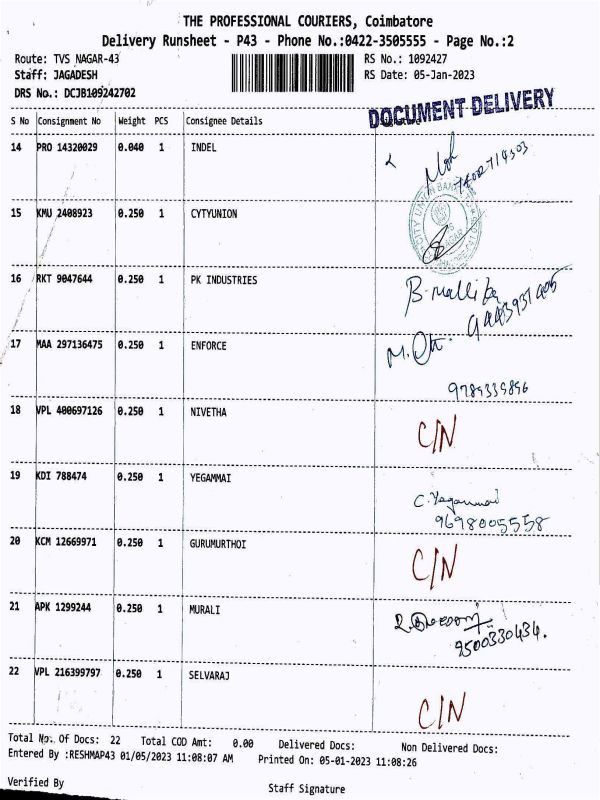 THE PROFESSIONAL COURIERS, Coimbatore
Delivery Runsheet - P43 - Phone No.:0422-3505555 - Page No.:2
Route: TVS NAGAR-43 RS No.: 1092427
Staff: JAGADESH RS Date: 05-Jan-2023
DRS No.: DCJB109242702
DOCUMENT DELIVERY
S No Consignment No Weight PCS Consignee Details Signature
14 PRO 14320029 0.040 1 INDEL
15 KMU 2408923 0.250 1 CYTYUNION
16 RKT 9047644 0.250 1 PK INDUSTRIES B. Mallika
17 MAA 297136475 0.250 1 ENFORCE
9789339896
18 VPL 400697126 0.250 1 NIVETHA C/N
19 KDI 788474 0.250 1 YEGAMMAI C. Yegammai
9698005558
20 KCM 12669971 0.250 1 GURUMURTHOI C/N
21 APK 1299244 0.250 1 MURALI
9500330434.
22 VPL 216399797 0.250 1 SELVARAJ C/N
Total No. Of Docs: 22 Total COD Amt: 0.00 Delivered Docs: Non Delivered Docs:
Entered By :RESHMAP43 01/05/2023 11:08:07 AM Printed On: 05-01-2023 11:08:26
Verified By Staff Signature